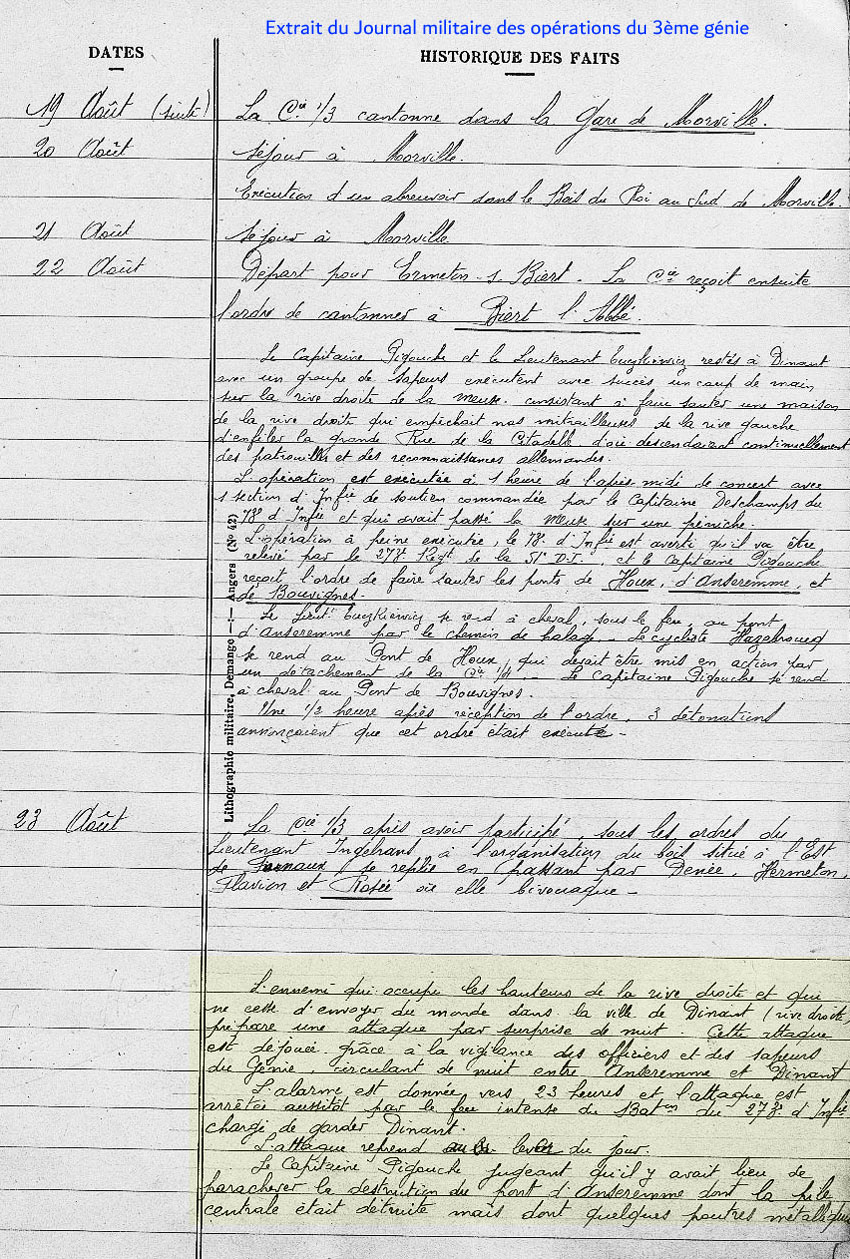 Extrait du Journal militaire des opérations du 3ème génie
DATES
HISTORIQUE DES FAITS
19 Août (suite)
La Cie 1/3 cantonne dans la gare de Morville.
20 Août
Séjour à Morville.
Exécution d'un abreuvoir dans le Bois du Roi au Sud de Morville.
21 Août
Séjour à Morville
22 Août
Départ pour Ermeton-s-Biert. La Cie reçoit ensuite
l'ordre de cantonner à Biert l'Abbé.
Le Capitaine Pigouche et le Lieutenant Euczkiewicz restés à Dinant
avec un groupe de sapeurs exécutent avec succès un coup de main
sur la rive droite de la Meuse. consistant à faire sauter une maison
de la rive droite qui empêchait nos mitrailleuses de la rive gauche
d'enfiler la grande Rue de la Citadelle d'où descendaient continuellement
des patrouilles et des reconnaissances allemandes.
L'opération est exécutée à 1 heure de l'après-midi de concert avec
1 section d'Infie de soutien commandée par le Capitaine Deschamps du
73e d'Infie et qui avait passé la Meuse sur une péniche.
L'opération à peine exécutée, le 73e d'Infie est averti qu'il va être
relevé par le 273e Regt de la 51e D.I., et le Capitaine Pigouche
reçoit l'ordre de faire sauter les ponts de Houx, d'Anseremme, et
de Bouvignes.
Le Lieutt Euczkiewicz se rend à cheval, sous le feu, au pont
d'Anseremme par le chemin de halage - Le cycliste Hazebroucq
se rend au Pont de Houx, qui devait être mis en action par
un détachement de la Cie 1/1 - Le Capitaine Pigouche se rend
à cheval au Pont de Bouvignes.
Une 1/2 heure après réception de l'ordre, 3 détonations
annonçaient que cet ordre était exécuté -
Lithographie militaire, Demango -:- Angers (No 42)
23 Août
La Cie 1/3 après avoir participé, sous les ordres du
Lieutenant Ingelrans, à l'organisation du bois situé à l'Est
de Furnaux, se replie en passant par Denée, Hermeton,
Flavion et Rosée où elle bivouaque -
L'ennemi qui occupe les hauteurs de la rive droite et qui
ne cesse d'envoyer du monde dans la ville de Dinant (rive droite)
prépare une attaque par surprise de nuit. Cette attaque
est déjouée grâce à la vigilance des officiers et des sapeurs
du Génie, circulant de nuit entre Anseremme et Dinant
L'alarme est donnée vers 23 heures et l'attaque est
arrêtée aussitôt par le feu intense du Baton du 273e d'Infie
chargé de garder Dinant.
L'attaque reprend au lever du jour.
Le Capitaine Pigouche jugeant qu'il y avait lieu de
parachever la destruction du pont d'Anseremme dont la pile
centrale était détruite mais dont quelques poutres métalliques